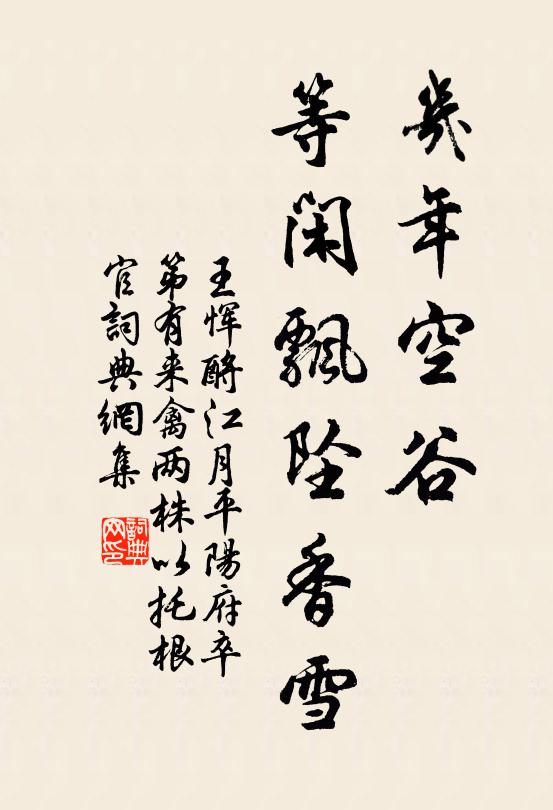 幾年空谷
等閑飄墜香雪
王恽酹江月平陽府卒
第有来禽两株以托根
官詞典網集
詞典网印